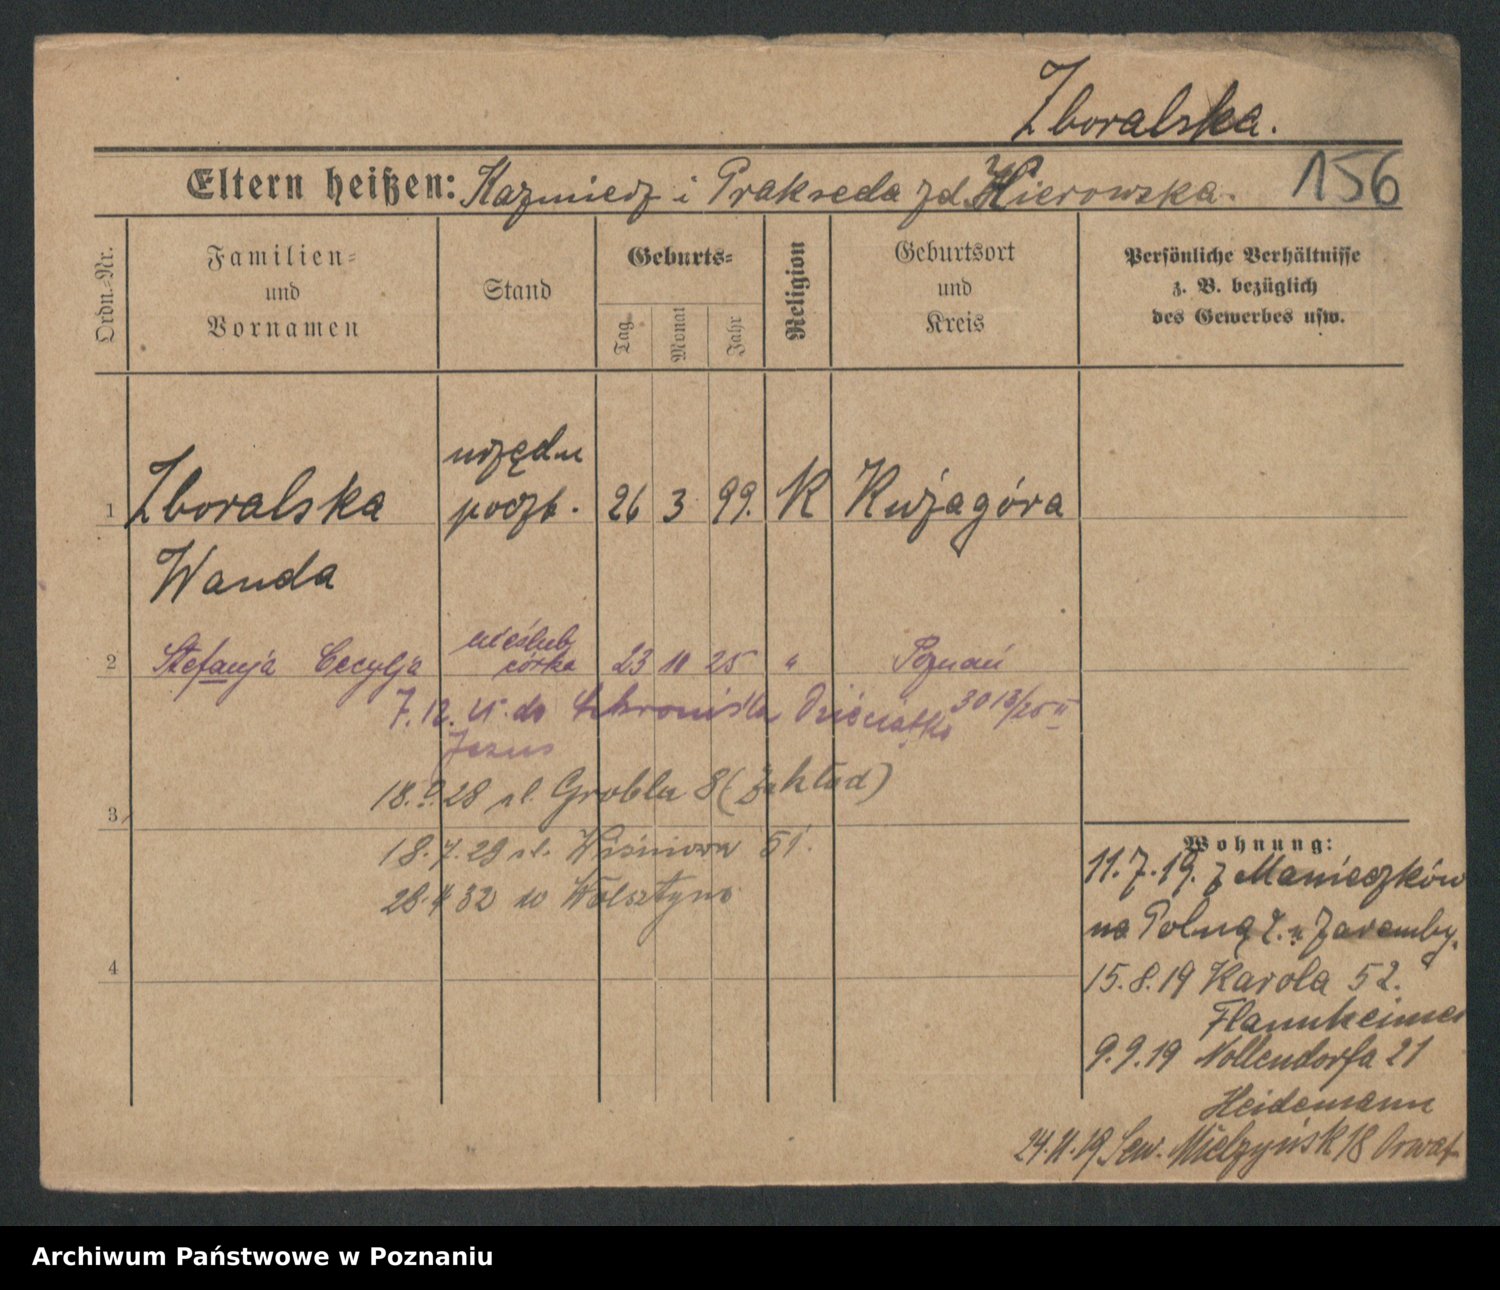 Zboralska.
Eltern heißen: Kazmierz i Prakseda zd. Hierowska. 156
Ordn.-Nr.
Familien-
und
Vornamen
Stand
Geburts-
Tag
Monat
Jahr
Religion
Geburtsort
und
Kreis
Persönliche Verhältnisse
z. B. bezüglich
des Gewerbes usw.
urzędn
1 Zboralska poczt. 26 3 99. K Kujagóra
Wanda
nieślub
2 Stefanja Cecylja córka 23 11 25 " Poznań
7.12.25. do Schroniska Dzieciątko
Jezus
18. 28 ul. Grobla 8 (Zakład)
3
18.7.29 ul. Wiśniowa 51.
28.4 32 do Wolsztyna
4
Wohnung:
11.7.19. z Manieczków
na Polną Zaremby.
15.8.19 Karola 52.
9.9.19 Nollendorfa 21
Heidemann
24.11.19 Sew. Mielzyńsk 18
Archiwum Państwowe w Poznaniu